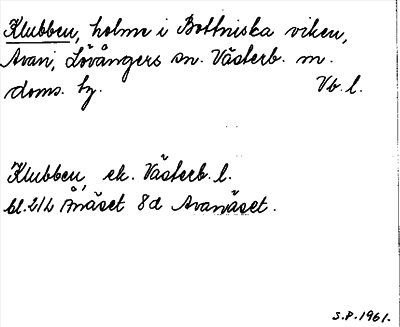 Klubben, holme i Bottniska viken,
Avan, Lövångers sn. Västerb. m.
doms. tg. Vb. l.
Klubben, ek. Västerb. l.
bl. 212 Ånäset 8d Avanäset.
S.P. 1961.